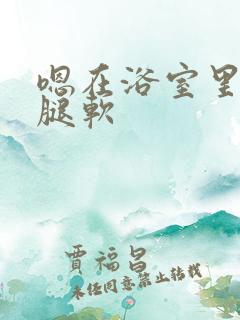 嗯在浴室里
腿软
贾福昌
未经同意禁止转载